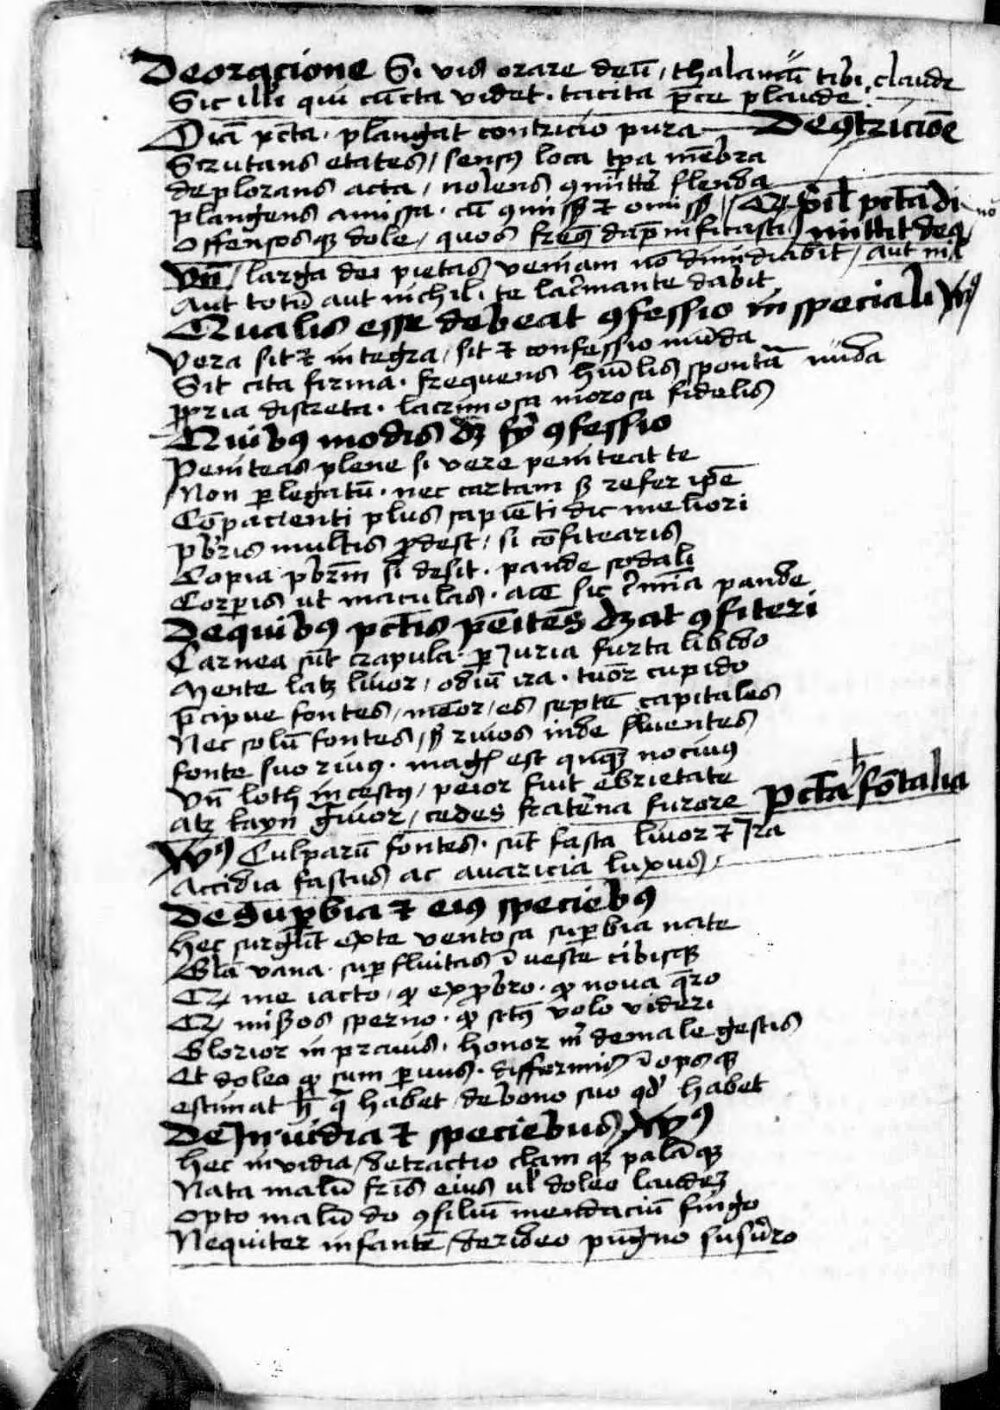 De oracione Si vis orare deū / thalamū tibi claude
Sic illi qui cūcta videt · tacita p̄ce plaude
Diā pctā · plangat contricio pura De 9tricōe
Scrutans etates / sensꝯ loca tp̄a mēbra
deplorans acta / nolens 9mittē flenda
plangens amissa · cū 9missꝭ et omissꝭ / Qꝛ sil̄ pctā di
Offensosqꝫ dole / quos freqꝫ dāpnificasti / mittit deꝯ
Vn̄ / larga dei pietas veniam nō dimidiabit / aut nil
Aut totū aut nichil · te lacrimante dabit
Qualis esse debeat 9fessio in speciali Vꝰ
Vera sit et integra / sit et confessio munda
Sit cita firma · frequens hūilis spontā nuda
ppria discreta · lacrimosa morosa fidelis
Quibꝯ modis dꝫ fi 9fessio
Peniteas plene si vere peniteat te
Non p legatū · nec cartam sꝫ refer ipē
Cōpacienti plus sapiēti dic meliori
pbr̄is multis pdest / si cōfitearis
Copia pbrm̄ si desit · pande sodali
Corpis ut maculas · ac sic crīmina pande
De quibꝯ pctīs pēitēs dꝫat 9fiteri
Carnea sūt crapula · piuria furta libido
Mente latꝫ livor / odiū ira · tuōr cupido
p̄cipue fontes / memor / es septē capitales
Nec solū fontes / sꝫ rivos inde fluentes
fonte suo rivꝯ · magꝭ est qnqꝫ nocivus
Vn̄ loth incestꝯ / peior fuit ebrietate
Atqꝫ kayn gͣvior / cedes fraterna furore pctā fōtalia
Vꝰ Culparū fontes · sūt fasta livor et Ira
Accidia fastus ac avaricia luxus
De Supbia et eiꝯ speciebꝯ
hec surgūt ex te ventosa supbia nate
Glā vana · supfluitas ī veste cibisqꝫ
Qꝛ me iacto / qꝫ expbro · qꝫ nova qr̄o
Qꝛ missos sperno · qꝫ sctꝯ volo videri
Glorior in pravis · honor m̄ de male gestis
Et doleo qꝫ sum pvus · difformis īopsqꝫ
estimat h̄ q habet de bono suo qd habet
De Invidia et speciebus Vꝰ
hec invidia / detractio clamqꝫ palāqꝫ
Nata malū fr̄is eius ul doleo laudes
Opto malū do 9siliū mendaciū fingo
Nequiter infantē / derideo pūgno susurro